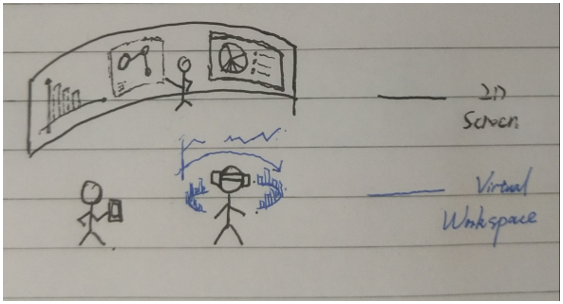 2D
Screen
Virtual
Workspace